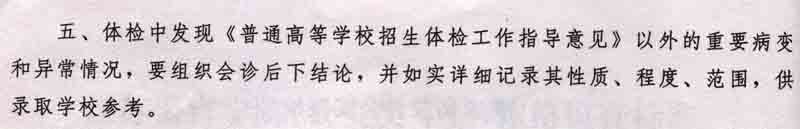 五、体检中发现《普通高等学校招生体检工作指导意见》以外的重要病变
和异常情况，要组织会诊后下结论，并如实详细记录其性质、程度、范围，供
录取学校参考。